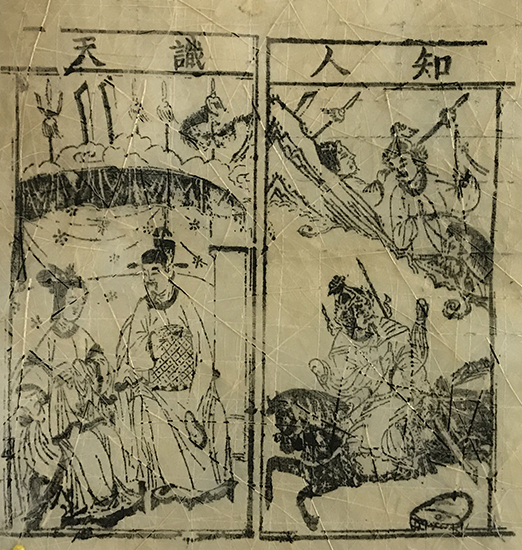 知人
識天